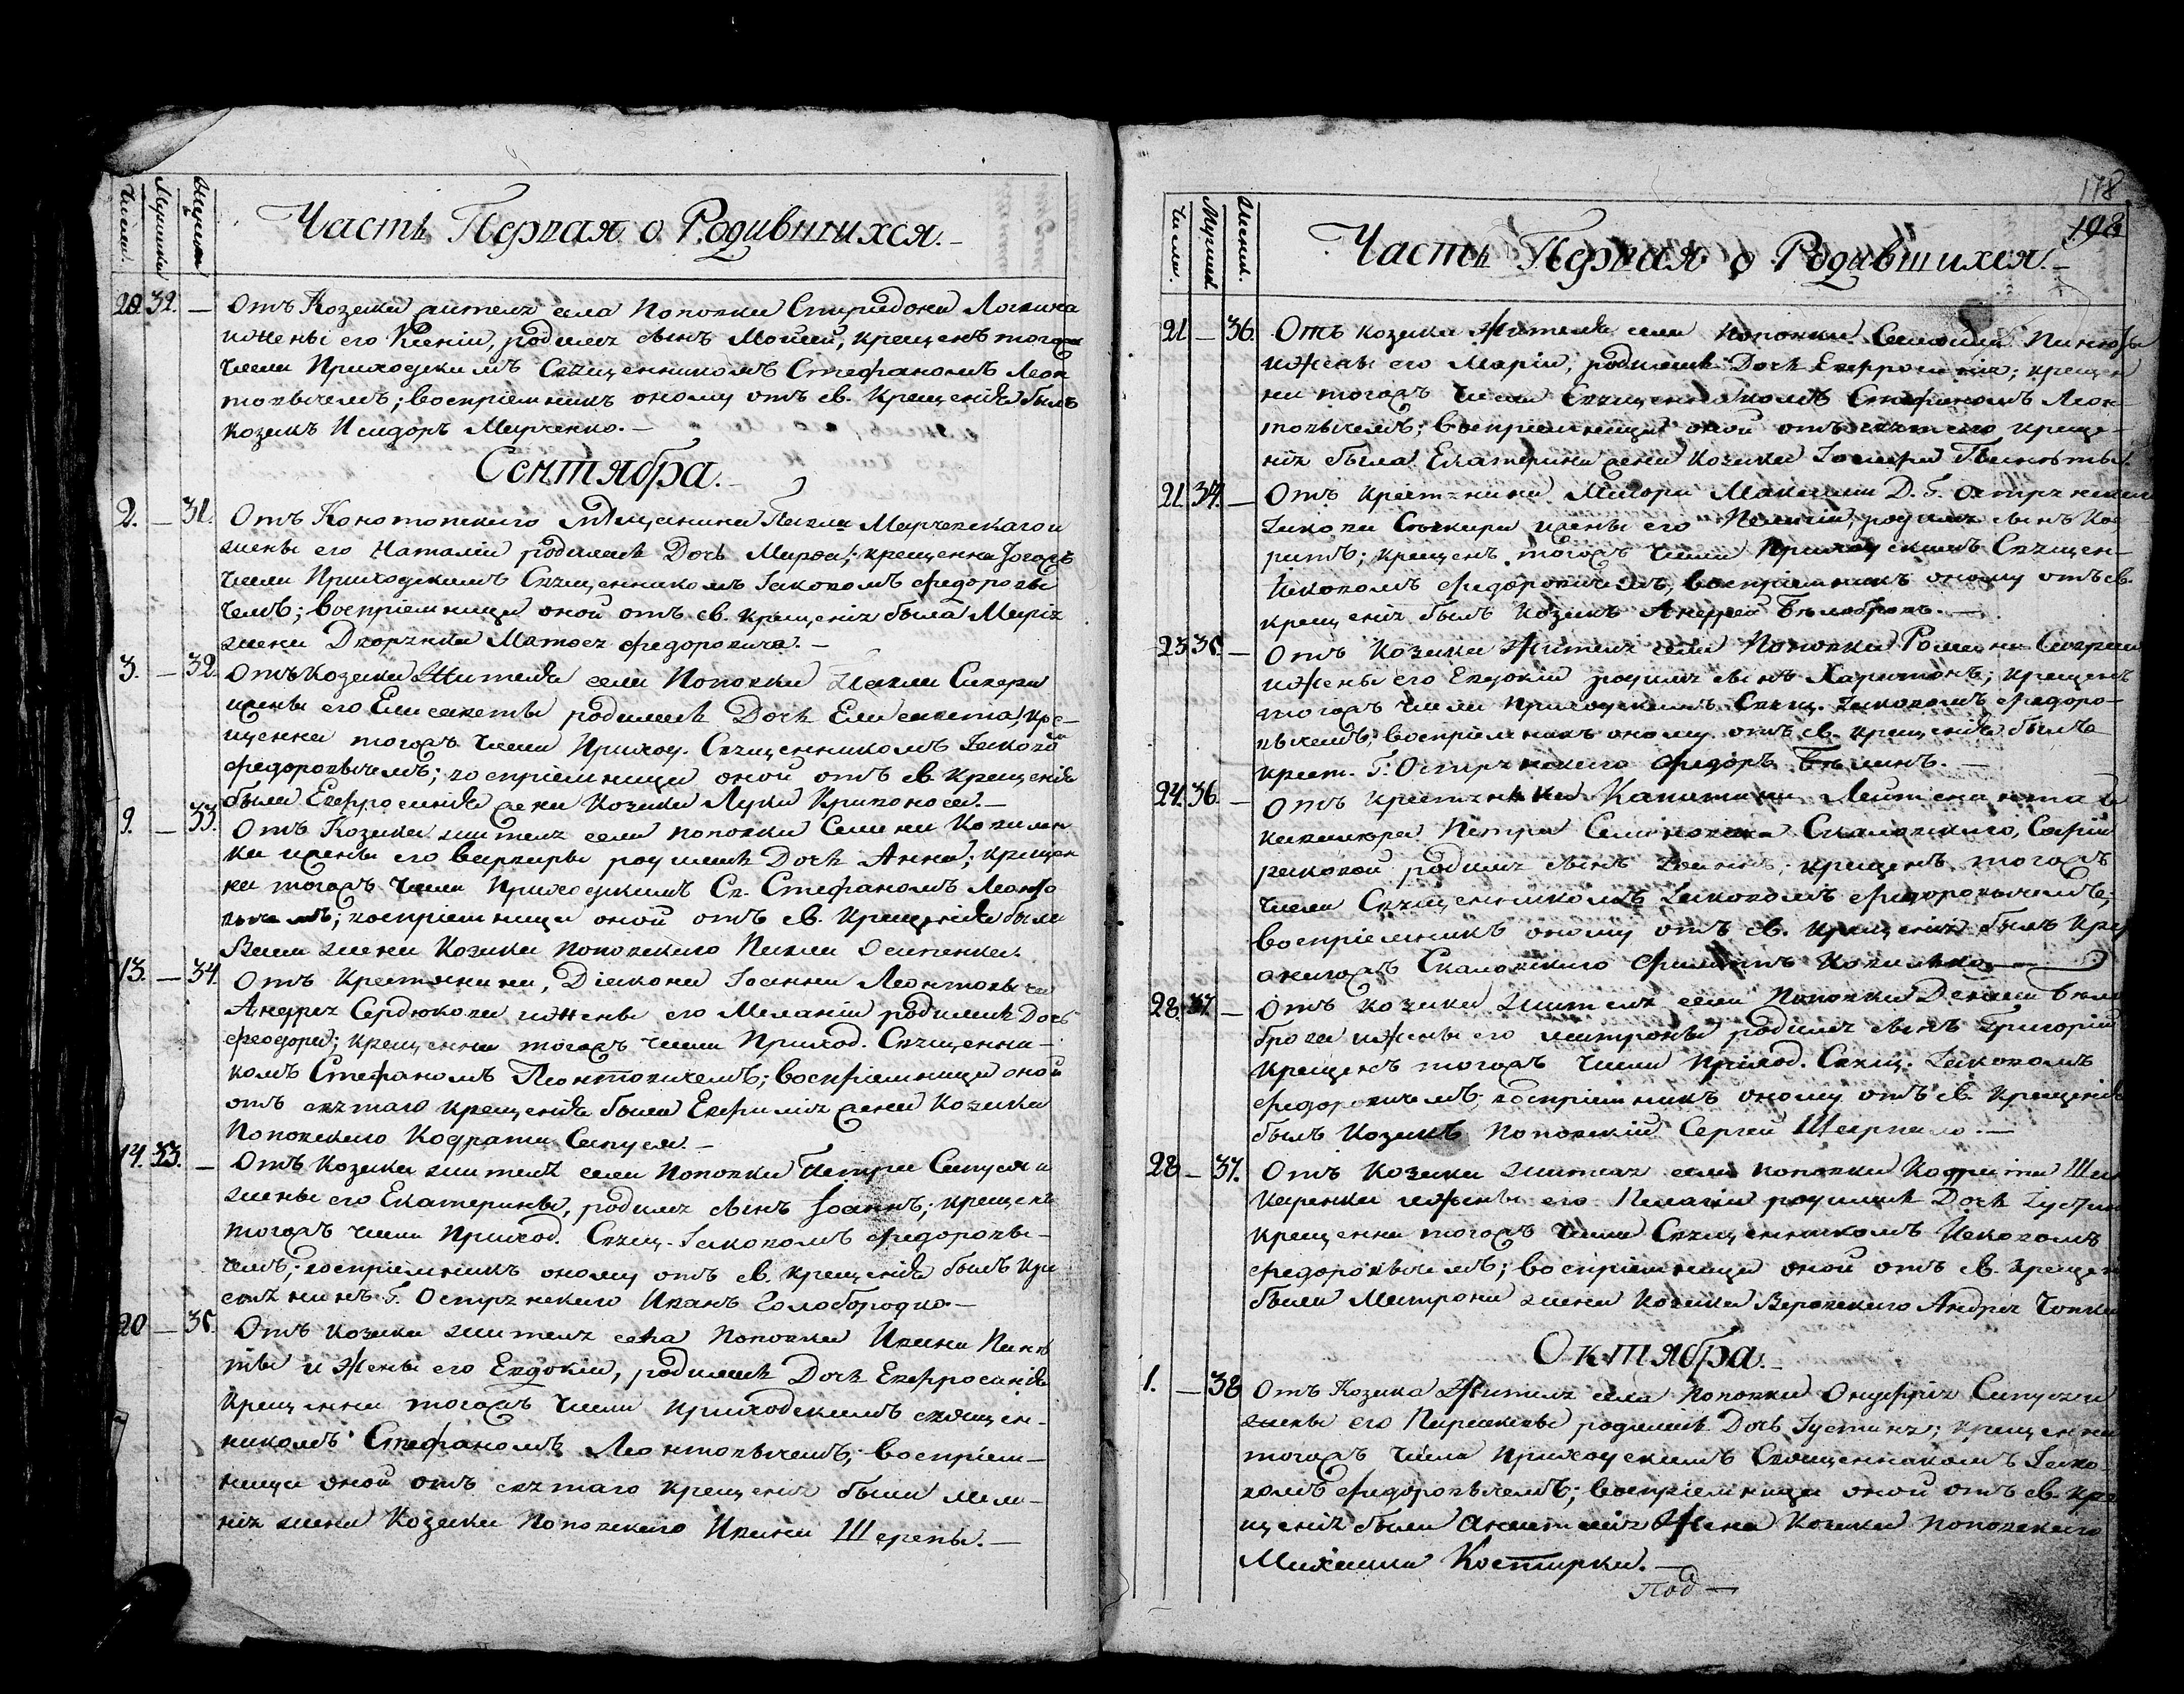 Числа. Мужска Женска
Часть Первая о Родившихся.
20. 32. — Отъ Козака жителя села Поповки Спиридона Логвина
и жены его Ксеніи, родился сынъ Моисей, крещенъ тогожъ
числа Приходскимъ Священникомъ Стефаномъ Леон
товичемъ; воспріемникъ оному отъ св. Крещенія былъ
Козакъ Исидоръ Марченко.—
Сентября.
2. — 31. Отъ Конотопскаго мѣщанина Павла Марчевскаго и
жены его Наталіи родилась Дочь Марѳа; крещенна тогожъ
числа Приходскимъ Священникомъ Іаковомъ Федорови
чемъ; воспріемница оной отъ св. крещенія была Марія
жена Дворянка Матвея Федоровича.—
3. — 32. Отъ Козака Жителя села Поповки Іакова Сикера
и жены его Елисаветы родилась Дочь Елисавета, кре-
щенна тогожъ числа Приход. Священникомъ Іаково
Федоровичемъ; воспріемница оной отъ св. Крещенія
была Евфросинія жена Козака Луки Кривоноса.—
9. — 33. Отъ Козака жителя села Поповки Семена Ковален
ка и жены его Варвары родилась Дочь Анна; крещен
на тогожъ числа Приходскимъ Св. Стефаномъ Леонто
вичемъ; воспріемница оной отъ св. Крещенія была
жена Козака Поповскаго Павла Осипенка.
13. — 34. Отъ Крестянина, Діакона Іоанна Леонтовича
Андрея Сердюкова и жены его Меланіи родилась Дочь
Феодора; крещенна тогожъ числа Приход. Священни-
комъ Стефаномъ Леонтовичемъ; воспріемница оной
отъ святаго крещенія была Евфимія жена Козака
Поповскаго Кодрата Сапуся.—
14. 33. — Отъ Козака жителя села Поповки Петра Сапуся и
жены его Екатерины, родился сынъ Іоаннъ; крещенъ
тогожъ числа Приход. Свящ. Іаковомъ Федорови-
чемъ; воспріемникъ оному отъ св. крещенія былъ кре
стянинъ Г. Острянскаго Иванъ Голобородко.—
20 — 35. Отъ Козака жителя села Поповки Ивана Пинѣ
ты и Жены его Евдокіи, родилась Дочь Евфросинія
крещенна тогожъ числа Приходскимъ священ-
никомъ Стефаномъ Леонтовичемъ; воспріем-
ница оной отъ святаго крещенія была Мела-
нія жена Козака Поповскаго Ивана Шерепы.—
178
198
Числа. Мужска Женск.
Часть Первая о Родившихся.—
21 — 36. Отъ козака Жителя села Поповки
и Жены его Маріи, родилась Дочь Евфросинія; крещен
на тогожъ числа Священникомъ Стефаномъ Леон
товичемъ; воспріемница оной отъ святаго креще-
нія была Екатерина жена козака Іосифа Пинѣты.
21. 34. — Отъ крестянина Маіора Максима Д. Г. Острянскаго
Іакова Сикера и жены его Пелагіи, родился сынъ Код
ратъ; крещенъ тогожъ числа Приходскимъ Священ-
Іаковомъ Федоровичемъ, воспріемникъ оному отъ св.
крещенія былъ козакъ Андрей Бѣлобровъ.—
23 35. — Отъ Козака Жителя села Поповки Романа
и Жены его Евдокіи родился сынъ Харитонъ; крещенъ
тогожъ числа приходскимъ Свящ. Іаковомъ Федоро-
вичемъ; воспріемникъ оному отъ св. крещенія былъ
крест. Г. Острянскаго Федоръ.—
24. 36. — Отъ крестянки Капитана Лейтенанта и
кавалера Петра Семеновича Скаловскаго, Софіи
родился сынъ Іоаннъ; крещенъ тогожъ
числа Священникомъ Іаковомъ Федоровичемъ;
воспріемникъ оному отъ св. крещенія былъ кре
онагожъ Скаловскаго Филиппъ Коваленко.—
28. 37. — Отъ козака жителя села Поповки Дениса Бѣло
брова и Жены его Матроны родился сынъ Григорій
крещенъ тогожъ числа Приход. Свящ. Іаковомъ
Федоровичемъ; воспріемникъ оному отъ св. Крещенія
былъ Козакъ Поповскій Сергей.—
28 — 37. Отъ козака жителя села Поповки Кодрата Ше
каренка и Жены его Пелагіи родилась Дочь Іустин
крещенна тогожъ числа Священникомъ Іаковомъ
Федоровичемъ; воспріемница оной отъ св. крещен
была Матрона жена Козака Андрея
Октября.—
1. — 38 Отъ Козака Жителя села Поповки Онуфрія Сапуся и
жены его Параскевы родилась Дочь Іустина; крещенна
тогожъ числа Приходскимъ Священникомъ Іако-
вомъ Федоровичемъ; воспріемница оной отъ св. кре
щенія была Анастасія Жена Козака Поповскаго
Михаила Костирки.—
Под—